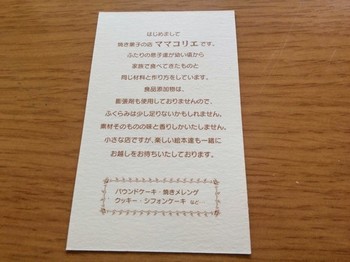 はじめまして
焼き菓子の店 ママコリエ です。
ふたりの息子達が幼い頃から
家族で食べてきたものと
同じ材料と作り方をしています。
食品添加物は、
膨張剤も使用しておりませんので、
ふくらみは少し足りないかもしれません。
素材そのものの味と香りしかいたしません。
小さな店ですが、楽しい絵本達も一緒に
お越しをお待ちいたしております。
パウンドケーキ・焼きメレンゲ
クッキー・シフォンケーキ など